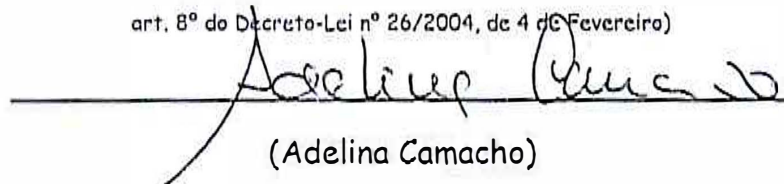 art. 8º do Decreto-Lei nº 26/2004, de 4 de Fevereiro)
Adelina Camacho
(Adelina Camacho)